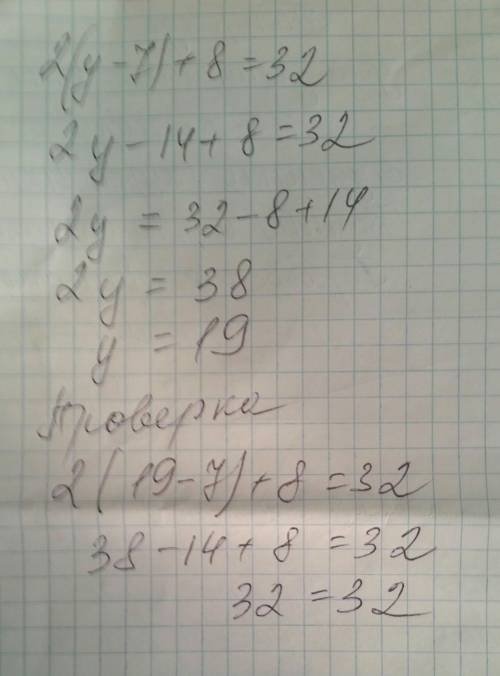 2(y-7)+8=32
2y-14+8=32
2y=32-8+14
2y=38
y=19
Проверка
2(19-7)+8=32
38-14+8=32
32=32